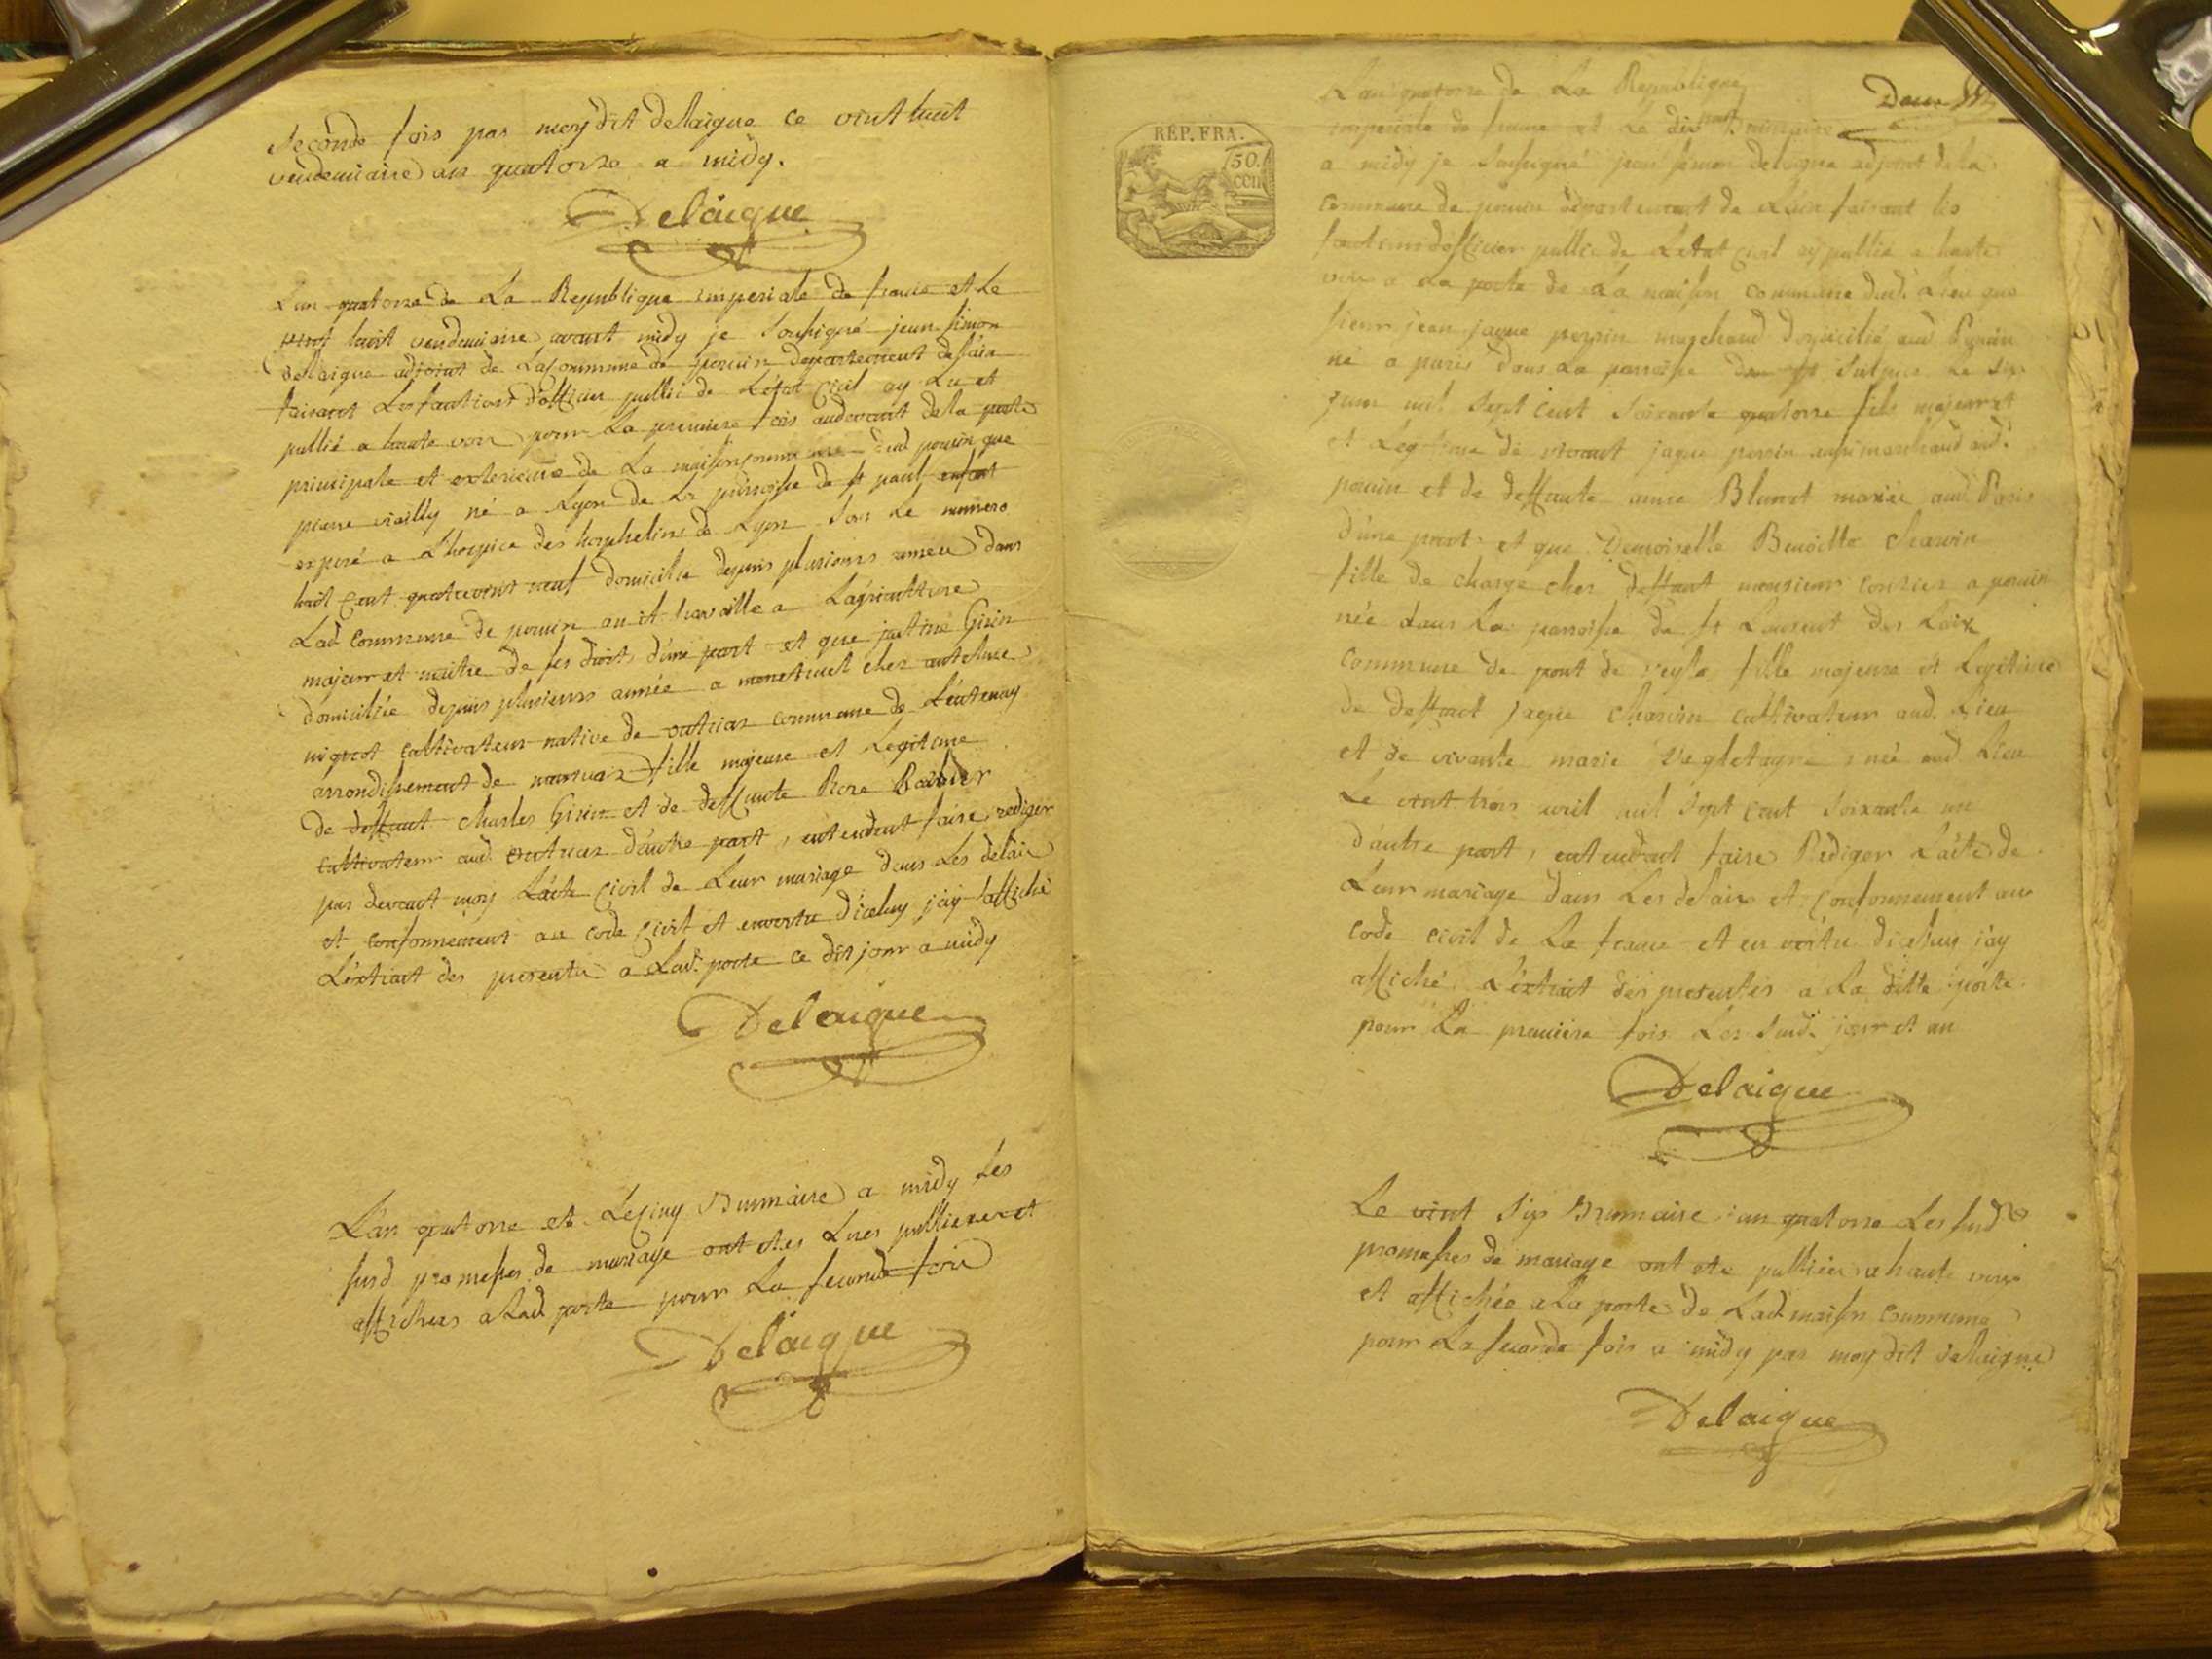 seconde fois par moy dit delaigue ce vint huit
vendemiaire an quatorze a midy.
Delaigue
L'an quatorze de La Republique imperiale de france et Le
vint huit vendemiaire avant midy je soussigné jean simon
delaigue adjoint de La commune de pouin departement de l'ain
faisant Les fonctions d'officier public de L'etat civil ay Lu et
publié a haute voix pour La premiere fois audevant de la porte
principale et exterieure de La maison commune dud pouin que
pierre né a Lyon de La parroisse de st paul enfant
exposé a L'hospice des horphelins de Lyon sous Le numero
huit cent quatrevint neuf domicilié depuis plusieurs année dans
Lad commune de pouin ou il travaille a L'agriculture
majeur et maitre de ses droits d'une part et que Girin
domiciliée depuis plusieurs année a chez antelme
cultivateur native de commune de
arrondissement de nantua fille majeure et Legitime
de deffunt charles Girin et de deffunte Roze Barbier
cultivateur aud d'autre part, entendent faire rediger
par devant moy L'acte civil de Leur mariage dans Les delais
et conformement au code civil et en vertu d'iceluy j'ay affiché
L'extrait des presentes a Lad. porte ce dit jour a midy
Delaigue
L'an quatorze et Le cinq Brumaire a midy Les
susd promesses de mariage ont etes Lues publiees et
affichées a Lad porte pour La seconde fois
Delaigue
RÉP. FRA.
50.
cen
L'an quatorze de La Republique
imperiale de france et Le dix Brumaire
a midy je soussigné jean simon delaigue adjoint de la
commune de pouin departement de L'ain faisant les
fonctions d'officier public de L'etat civil ay publié a haute
voix a La porte de La maison commune dud. Lieu que
sieur jean jaque perrin marchand domicilié aud Pouin
né a paris dans La parroisse de st Sulpice Le six
juin mil sept cent soixante quatorze fils majeur et
et Legitime de vivant jaque perrin aussi marchand aud.
pouin et de deffunte anne Blunat mariée aud Paris
d'une part, et que Demoiselle Benoitte Charvin
fille de charge chez deffunt monsieur a pouin
née dans La parroisse de st Laurent des
commune de pont de veyle, fille majeure et Legitime
de deffunt jaque Charvin cultivateur aud. Lieu
et de vivante marie née aud Lieu
Le vint trois avril mil sept cent soixante un
d'autre part, entendent faire Rediger L'acte de
Leur mariage dans Les delais et conformement au
code civil de La france et en vertu d'iceluy j'ay
affiché L'extrait des presentes a La ditte porte
pour La premiere fois Les susd. jour et an
Delaigue
Le vint six Brumaire an quatorze Les susd
promesses de mariage ont ete publiées a haute voix
et affichée a La porte de Lad maison commune
pour La seconde fois a midy par moy dit delaigue
Delaigue